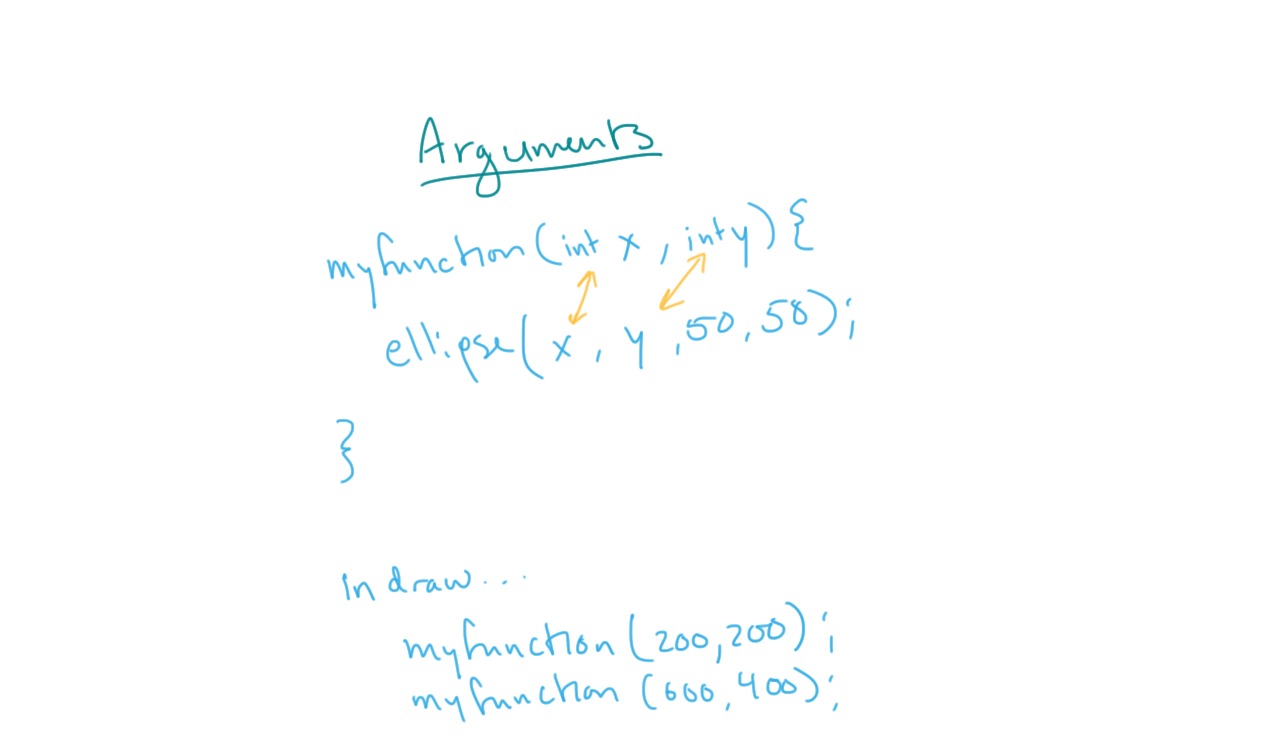 Arguments
myfunction(int x, int y){
ellipse(x, y, 50, 50);
}
In draw...
myfunction(200,200);
myfunction(600,400);